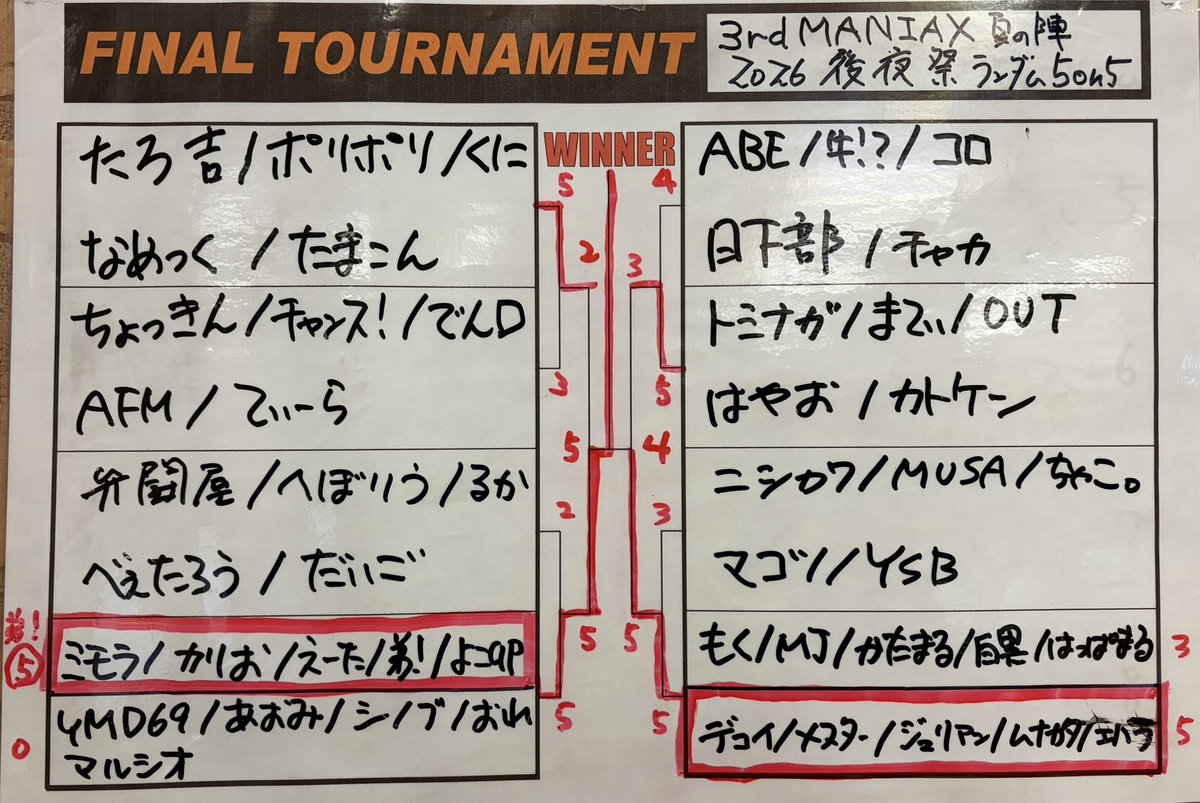 FINAL TOURNAMENT
3rd MANIAX 夏の陣
2026 後夜祭 ランダム5on5
WINNER
たろ吉/ポリポリ/くに
なめっく/たまこん
ちょっきん/チャンス!/でんD
AFM/てぃーら
弁闘屋/へぼりう/るか
べぇたろう/だいご
ミモラ/かりお/えーた/弟!/よこqp
YMD69/あおみ/シ/ブ/おれ
マルシオ
弟!
5
0
5
3
2
5
2
5
5
4
5
3
4
3
5
5
ABE/牛!?/コロ
日下部/チャカ
トミナガ/まてぃ/OUT
はやお/カトケン
ニシカワ/MUSA/ちゃこ。
マゴツ/YSB
もく/MJ/かたまる/白黒/はっぱまる
デコイ/メスター/ジュリアン/ムナカタ/エバラ
3
5